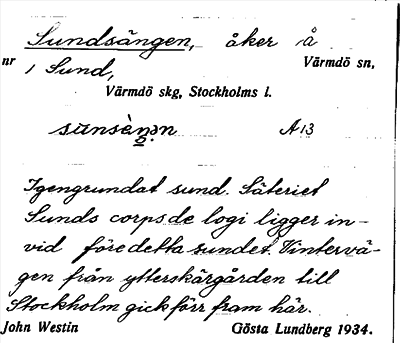 Sundsängen, åker i å
nr i Sund, Värmdö sn,
Värmdö skg, Stockholms l.
A 13
Igengrundat sund. Säteriet
Sunds corps de logi ligger in-
vid före detta sundet. Vintervä-
gen från ytterskärgården till
Stockholm gick förr fram här.
John Westin Gösta Lundberg 1934.